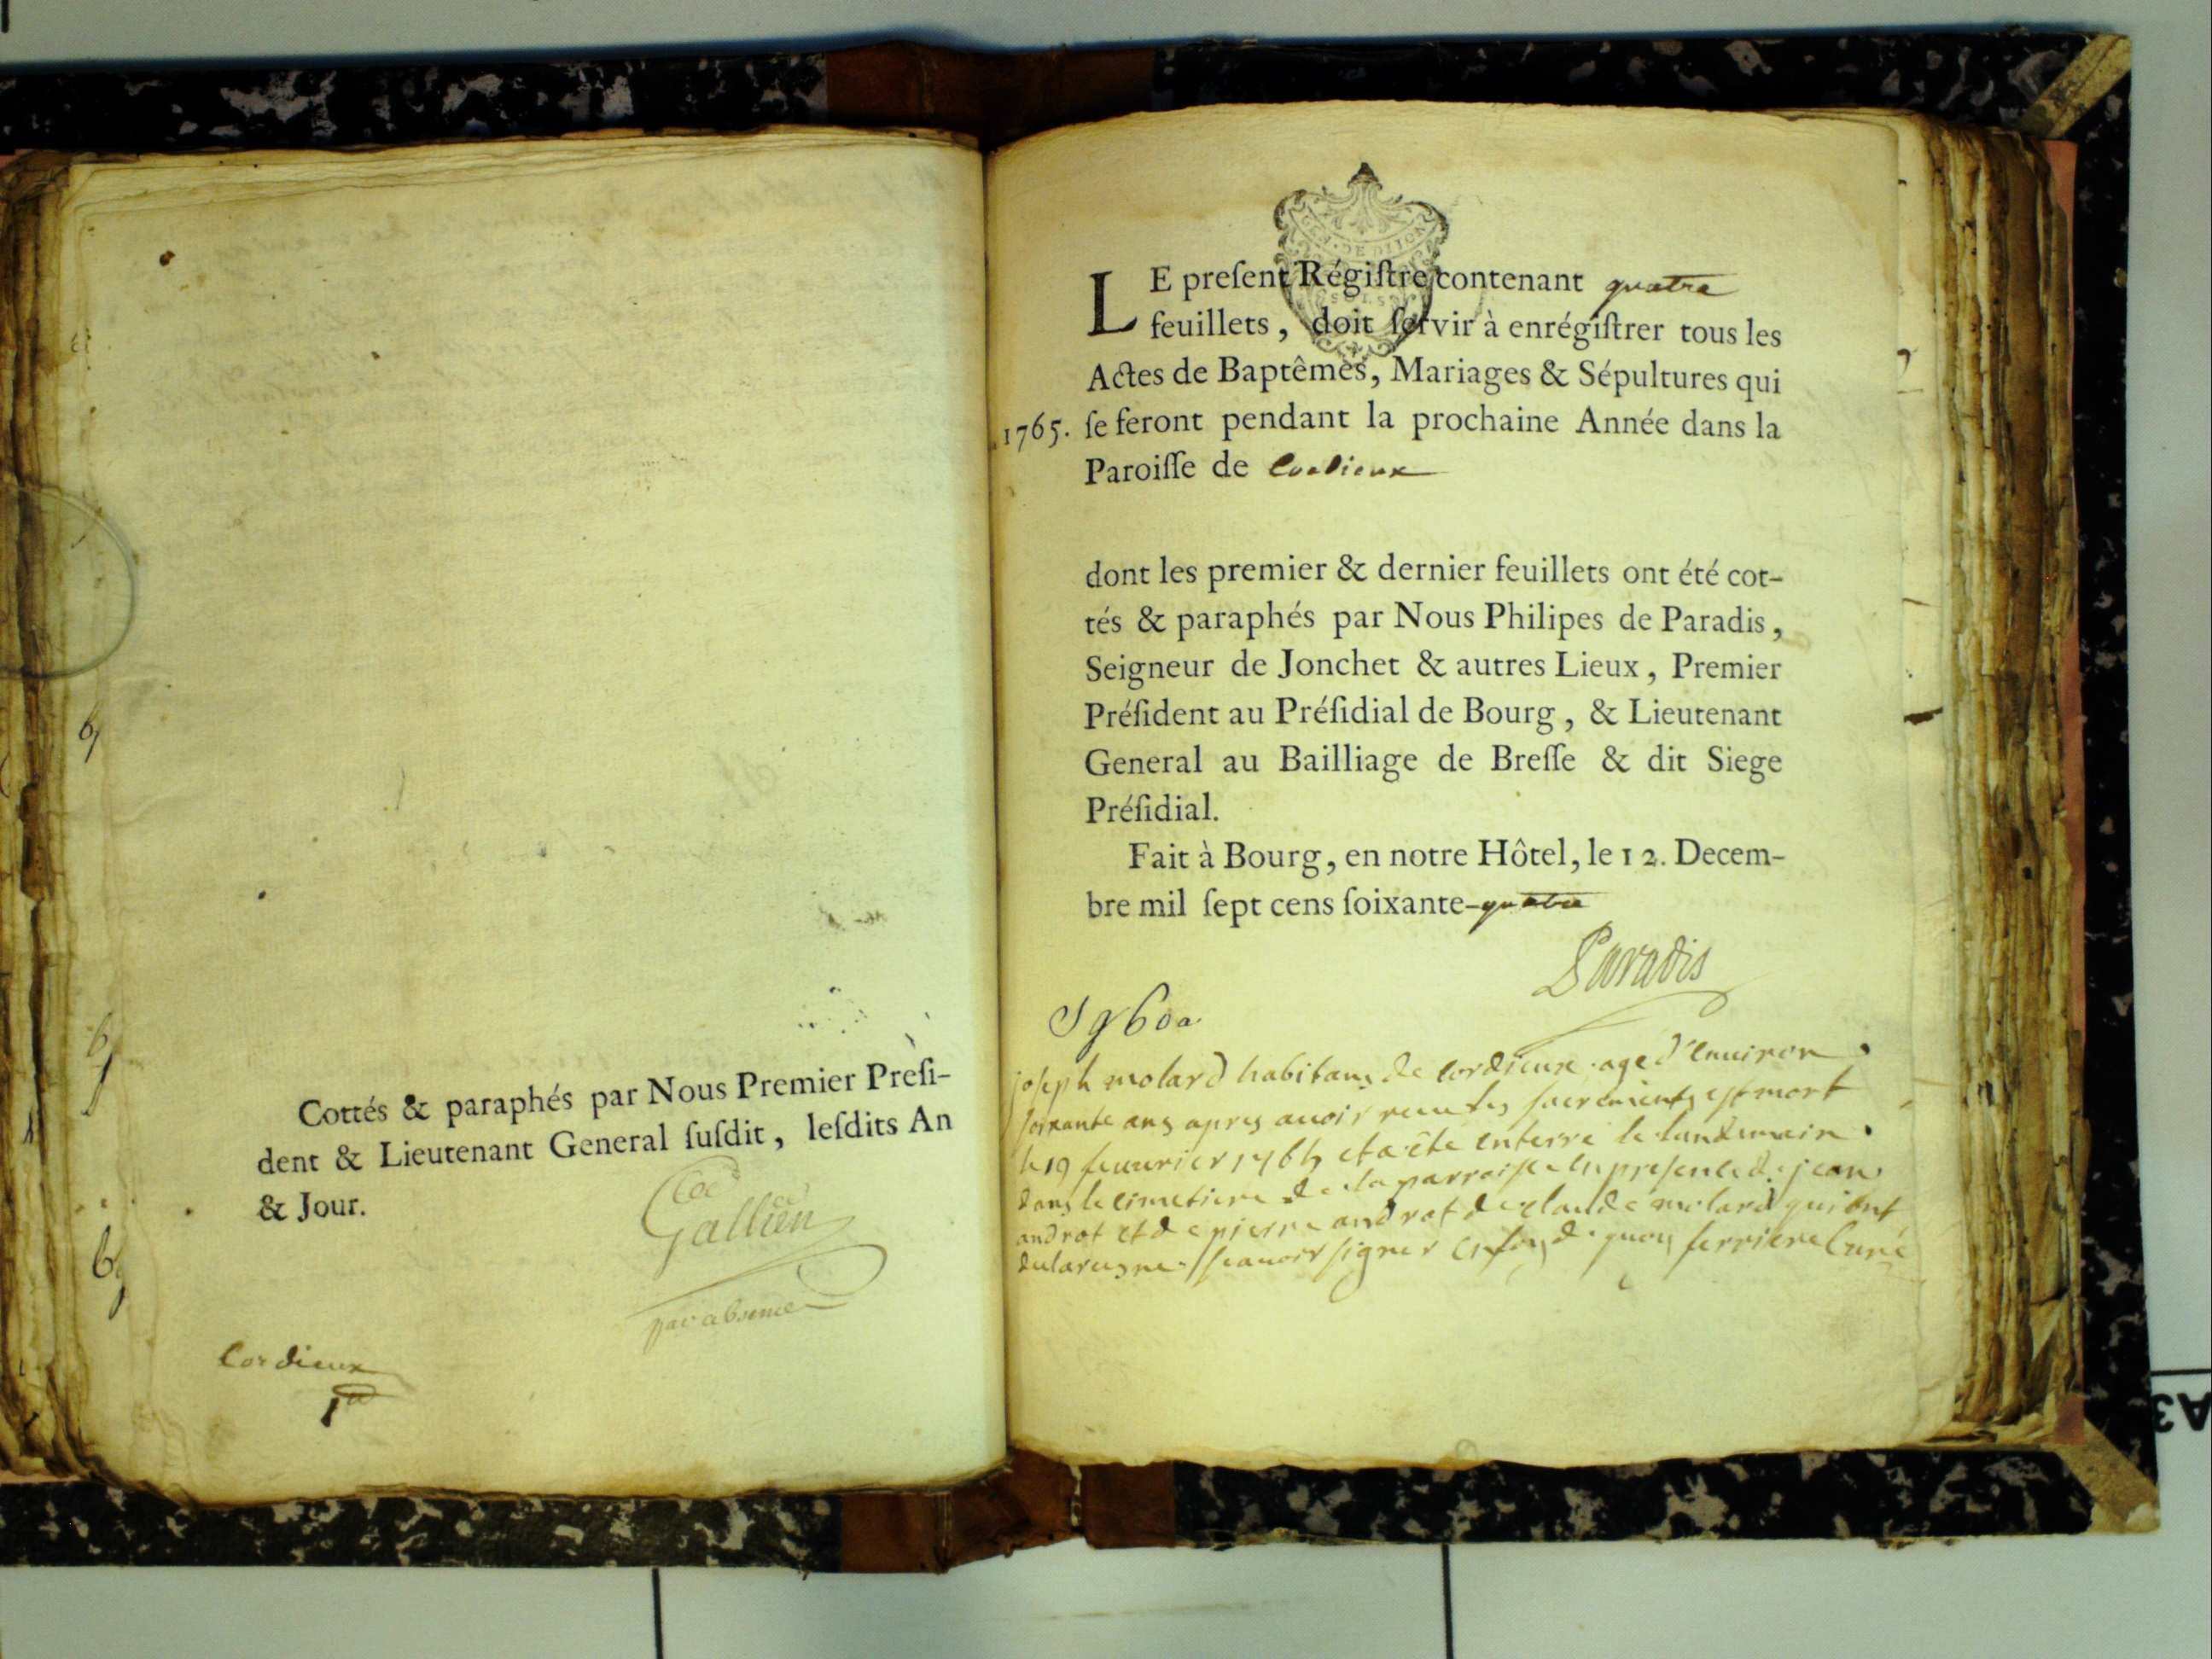 Cottés & paraphés par Nous Premier Presi-
dent & Lieutenant General ſuſdit, leſdits An
& Jour.
Gallien
par absence
Cordieux
1er
GEN. DE DIJON
LE preſent Régiſtre contenant quatre
feuillets, doit ſervir à enrégiſtrer tous les
Actes de Baptêmes, Mariages & Sépultures qui
1765. ſe feront pendant la prochaine Année dans la
Paroiſſe de Cordieux
dont les premier & dernier feuillets ont été cot-
tés & paraphés par Nous Philipes de Paradis,
Seigneur de Jonchet & autres Lieux, Premier
Préſident au Préſidial de Bourg, & Lieutenant
General au Bailliage de Breſſe & dit Siege
Préſidial.
Fait à Bourg, en notre Hôtel, le 12. Decem-
bre mil ſept cens ſoixante-quatre
Paradis
joseph molard habitans de Cordieux agé d'environ
soixante ans apres avoir receu les sacrements est mort
le 19 feuvrier 1765 et a été enterré le landemain
dans le cimetiere de la parroisse en presence de jean
androt et de pierre androt de claude molard qui ont
declaré ne sçavoir signer en foy de quoy ferriere Curé
A3